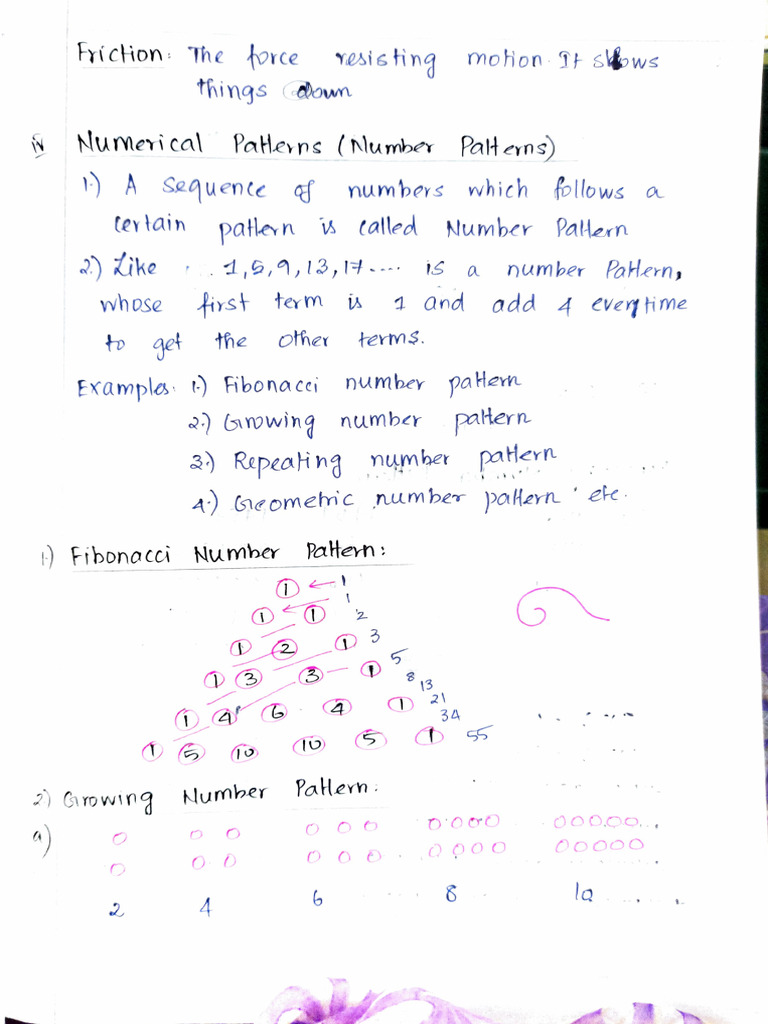 Friction: The force resisting motion. It slows
things down
iv Numerical Patterns (Number Patterns)
1.) A sequence of numbers which follows a
certain pattern is called Number Pattern
2.) Like ... 1, 5, 9, 13, 17.... is a number Pattern,
whose first term is 1 and add 4 everytime
to get the other terms.
Examples: 1.) Fibonacci number pattern
2.) Growing number pattern
3.) Repeating number pattern
4.) Geometric number pattern etc.
1.) Fibonacci Number Pattern:
1 ← 1
1 1 1
1 2 1 2
1 3 3 1 3
1 4 6 4 1 5
1 5 10 10 5 1 8
13
21
34
55
2) Growing Number Pattern.
a)
2 4 6 8 10